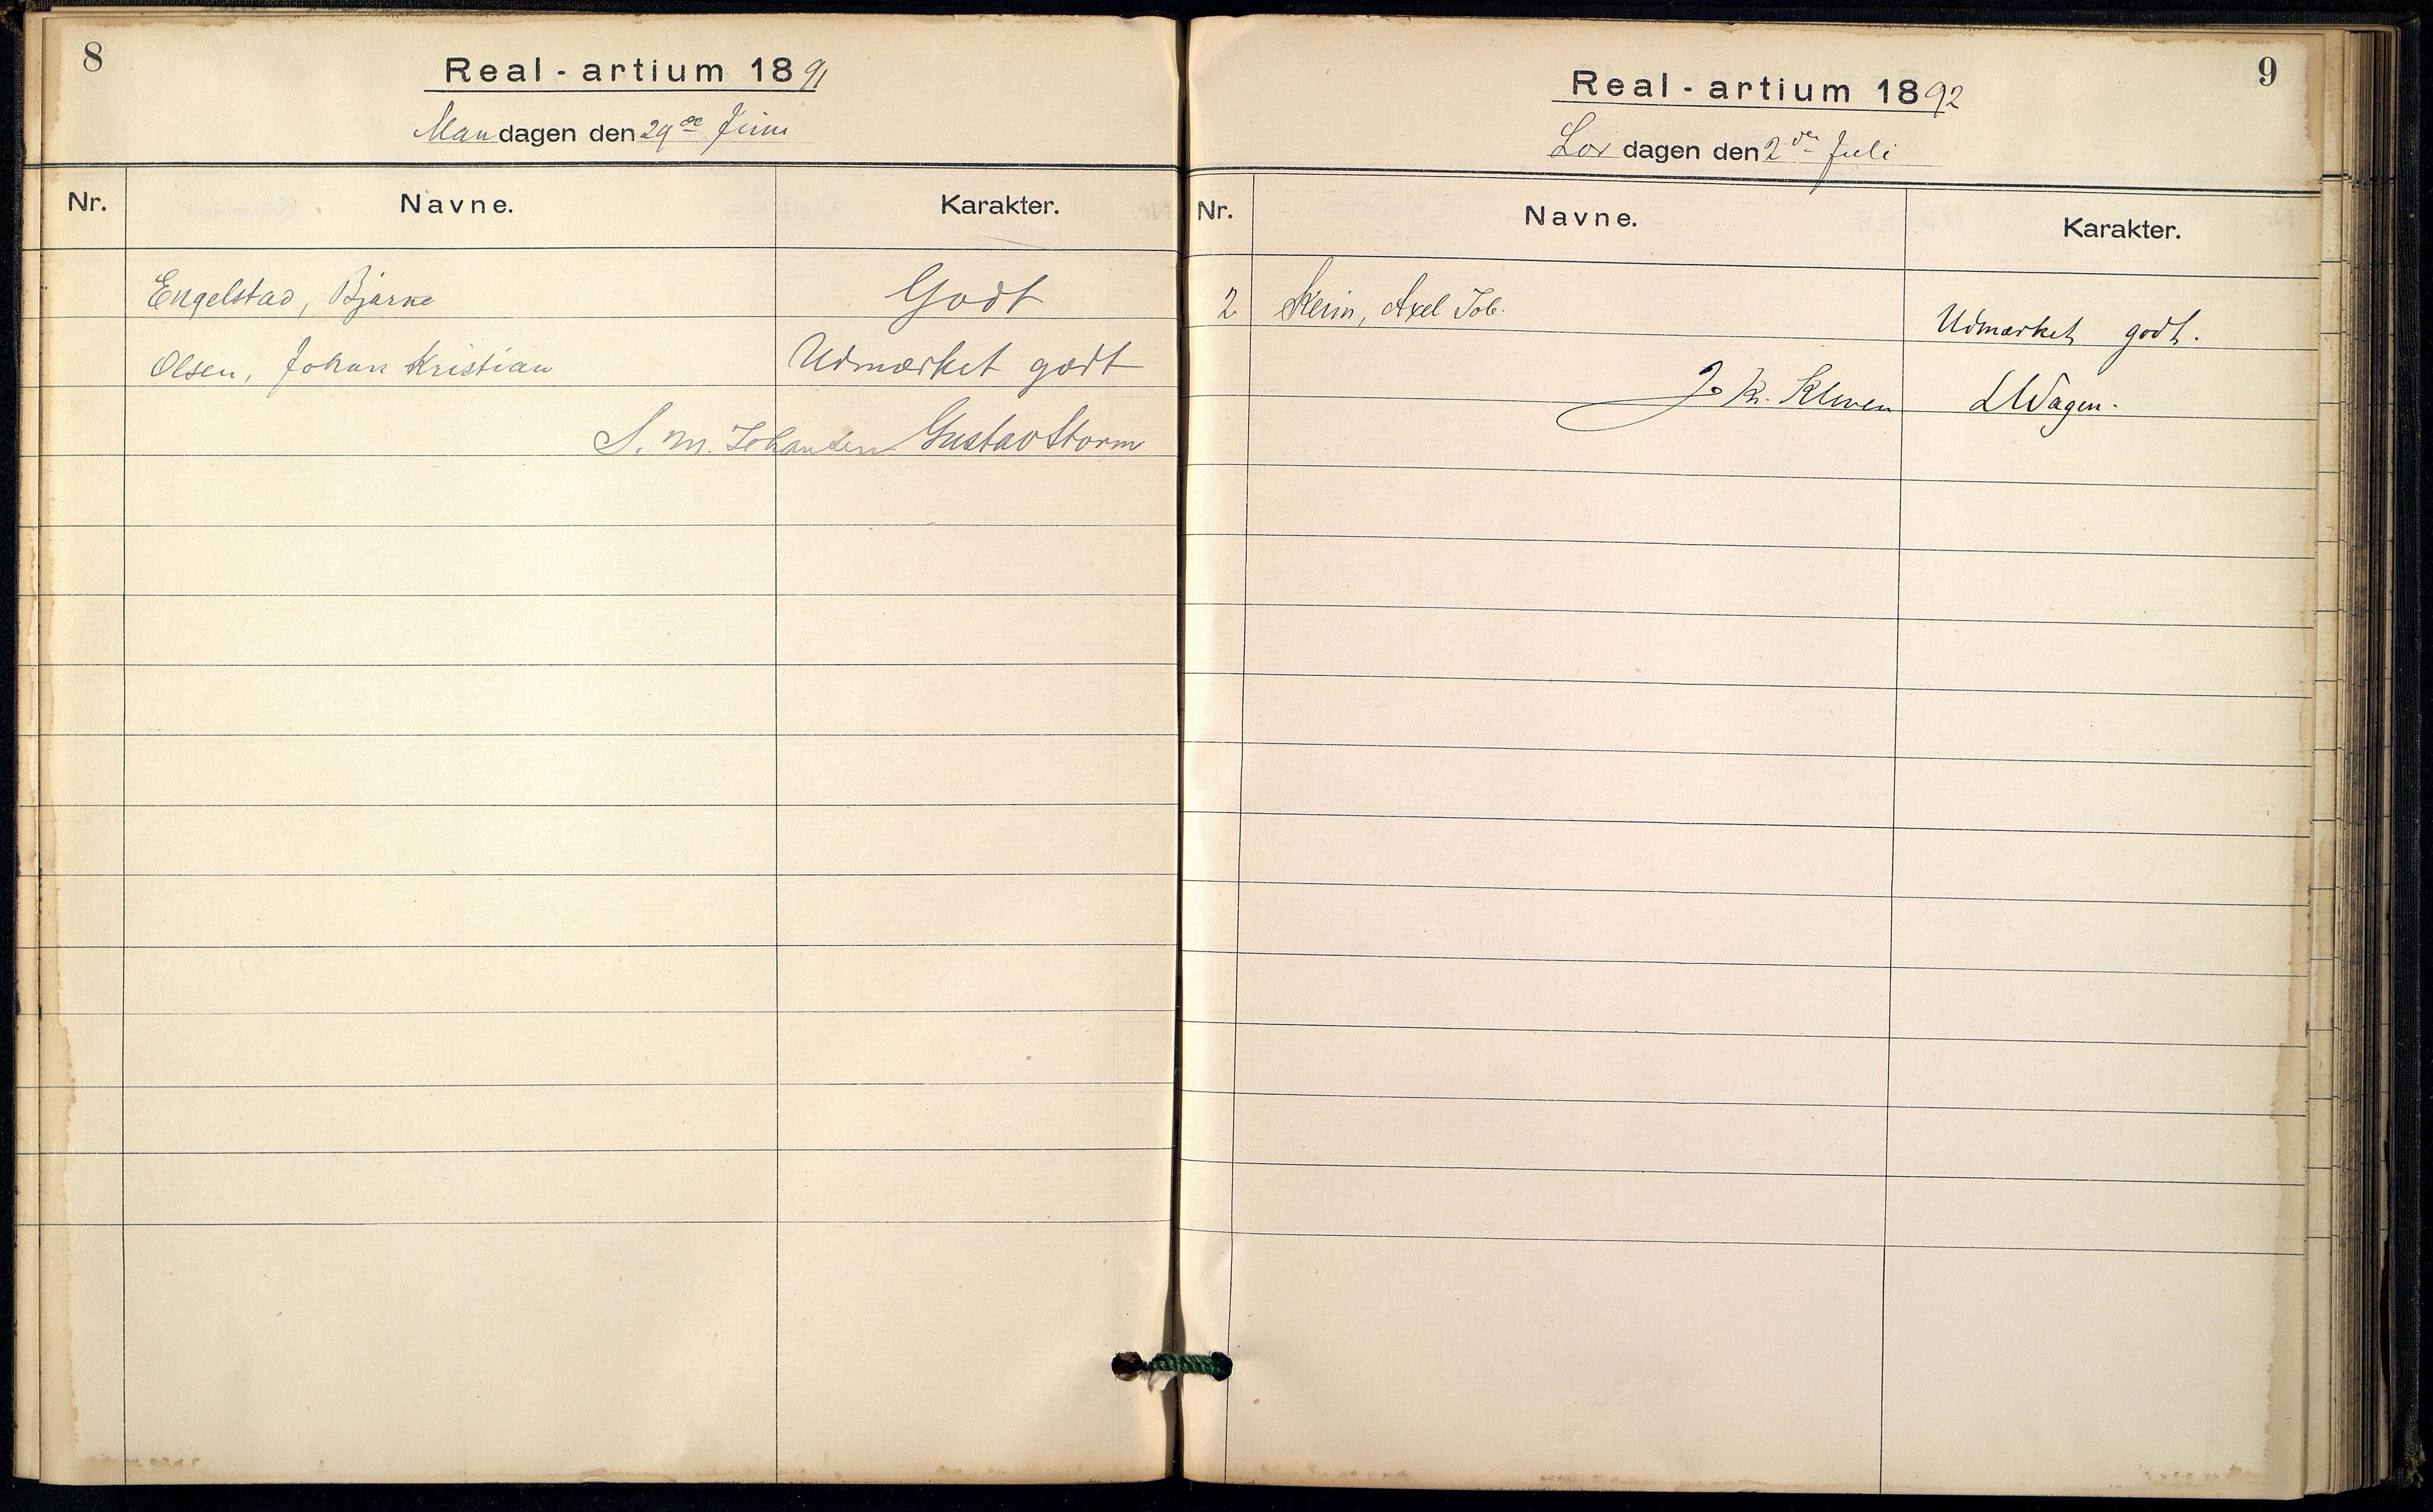 8
Real - artium 1891
Mandagen den 29de Juni
Nr. Navne. Karakter.
Engelstad, Bjarne Godt
Olsen, Johan Kristian Udmærket godt
S. M. Johansen Gustav Storm
9
Real - artium 1892
Lørdagen den 2den Juli
Nr. Navne. Karakter.
2 Axel Udmærket godt.
J. Kr. Kleven